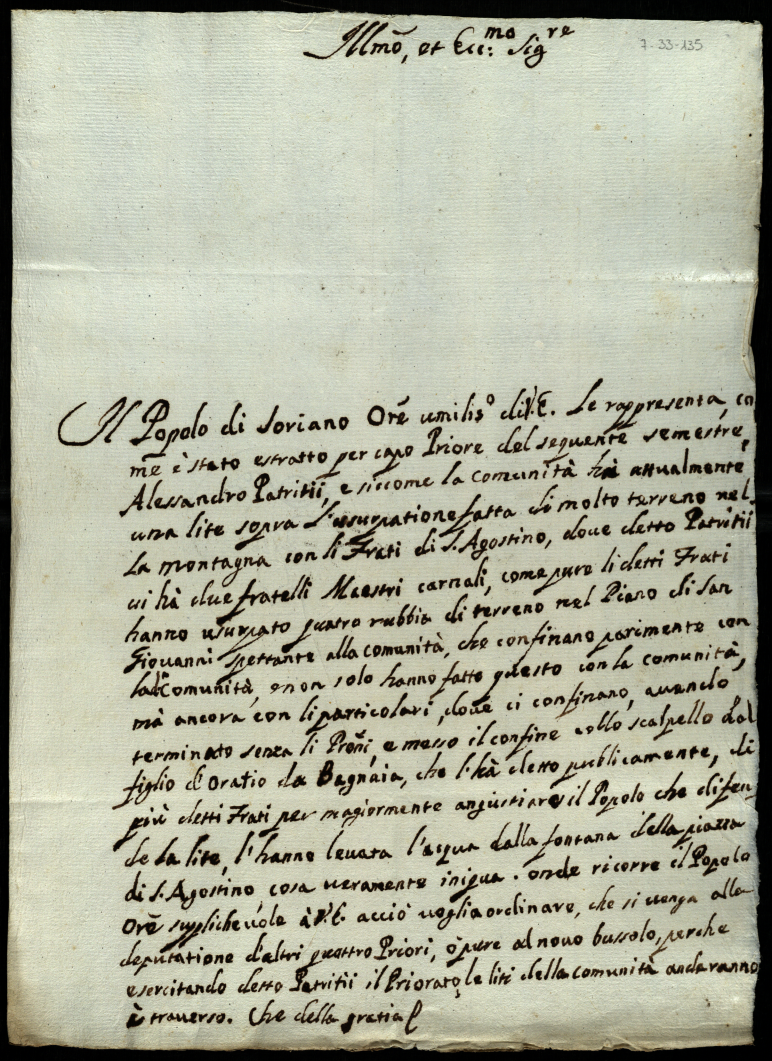 Illmõ, et Ecc:mo Sigre
7-33-135
Il Popolo di Soriano Orē umiliso di V.E. Le rappresenta, co
mē è stato estratto per capo Priore del seguente semestre,
Alessandro Patritii, e siccome la Comunità hà attualmente
una lite sopra l'usurpatione fatta di molto terreno nel
la montagna con li Frati di S. Agostino, dove detto Patritii
ui hà due fratelli Maestri carnali, come pure li detti Frati
hanno usurpato quatro rubbia di terreno nel Piano di San
Giovanni spettante alla comunità, che confinano parimente con
la Comunità, e non solo hanno fatto questo con la comunità,
mà ancora con li particolari, dove ci confinano, avendo
terminato senza li Proñi, e messo il confine collo scalpello dal
figlio d'Oratio da Bagnaia, che l'hà detto publicamente, di
più detti Frati per magiormente angustiare il Popolo che difen
de la lite, l'hanno levata l'acqua dalla fontana della piazza
di S. Agostino, cosa veramente iniqua. onde ricorre il Popolo
Orē supplichevole à V.E. acciò voglia ordinare, che si venga alla
deputatione d'altri quattro Priori, ò pure al novo bussolo, perche
esercitando detto Patritii il Priorato, le liti della comunità anderanno
à traverso. Che della gratia